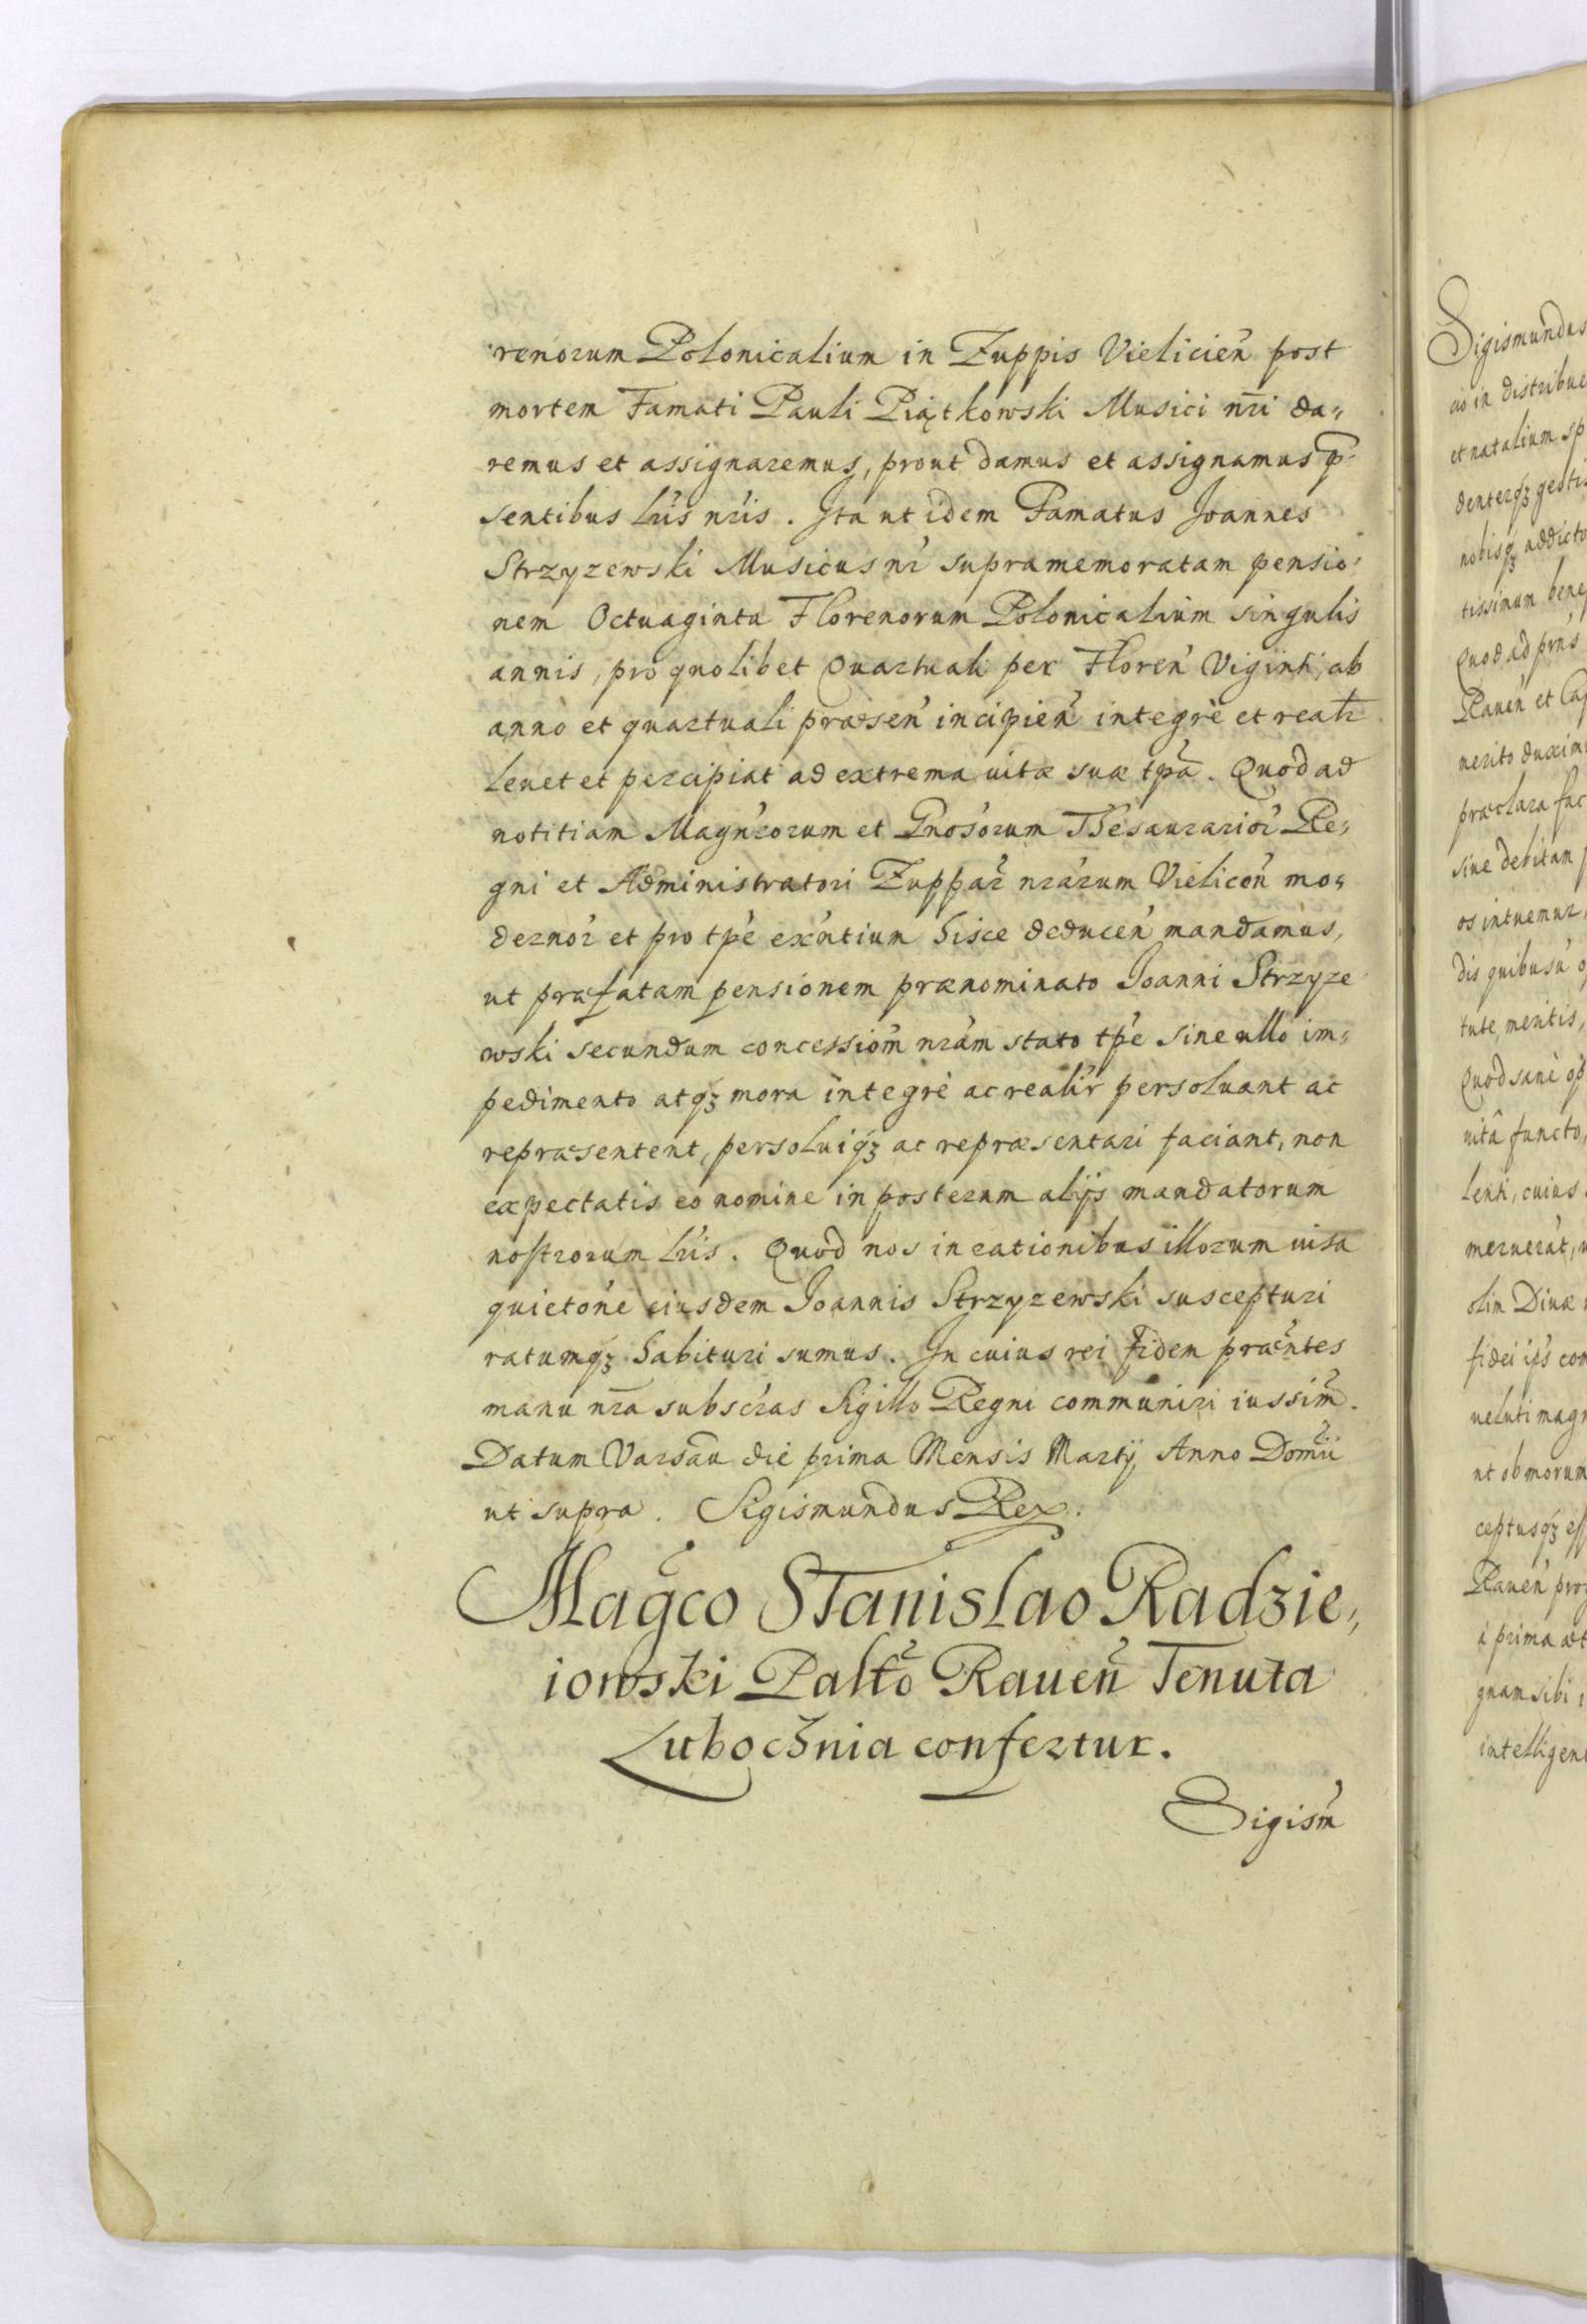 renorum Polonicalium in Zuppis Vielicien̄ post
mortem Famati Pauli Piątkowski Musici nr̄i da„
remus et assignaremus, prout damus et assignamus p̄„
sentibus lr̄is nr̄is. Ita ut idem Famatus Joannes
Strzyzewski Musicus nr̄ supramemoratam pensio„
nem Octuaginta Florenorum Polonicalium singulis
annis, pro quolibet Quartuali per Floren̄ Viginti, ab
anno et quartuali præsen̄ incipien̄ integrè et realr̄
leuet et percipiat ad extrema uitæ suæ tp̄a. Quod ad
notitiam Magn̄corum et Gn̄osorum Thesaurarior̄ Re„
gni et Administratori Zuppar̄ nr̄arum Vielicen̄ mo„
dernor̄ et pro tp̄e ex̄ntium hisce deducen̄ mandamus,
ut præfatam pensionem prænominato Joanni Strzyze
wski secundum concessiom̄ nr̄am stato tp̄e sine ullo im„
pedimento atqꝫ mora integrè ac realir̄ persoluant ac
repræsentent, persoluiqꝫ ac repræsentari faciant, non
expectatis eo nomine in posterum alijs mandatorum
nostrorum lr̄is. Quod nos in rationibus illorum uisa
quieton̄e eiusdem Joannis Strzyzewski suscepturi
ratumqꝫ habituri sumus. In cuius rei fidem præn̄tes
manu nr̄a subscr̄as Sigillo Regni communiri iussim̄.
Datum Varsau̅ die prima Mensis Martij Anno Domīi
ut supra. Sigismundus Rex.
Magc̄o Stanislao Radzie„
iowski Palt̄o Rauen̄ Tenuta
Lubochnia confertur.
Sigism̄
Sigismundus
in distribue
et natalium sp
denterqꝫ gesti
nobisqꝫ addicto
tissimum bene
Quod ad prn̄s
Rauen̄ et Cap
merito duxim
præclara fac
siue debitam
os intuemur,
dis quibusu̅
tute, meritis,
Quod sanè
uitâ functo,
lenti, cuius
meruerat,
olim Diuæ
fidei ip̄s con
ueluti mag
ut ob morum
ceptusqꝫ ess
Rauen̄ pro
à prima æt
quam sibi
intelligen